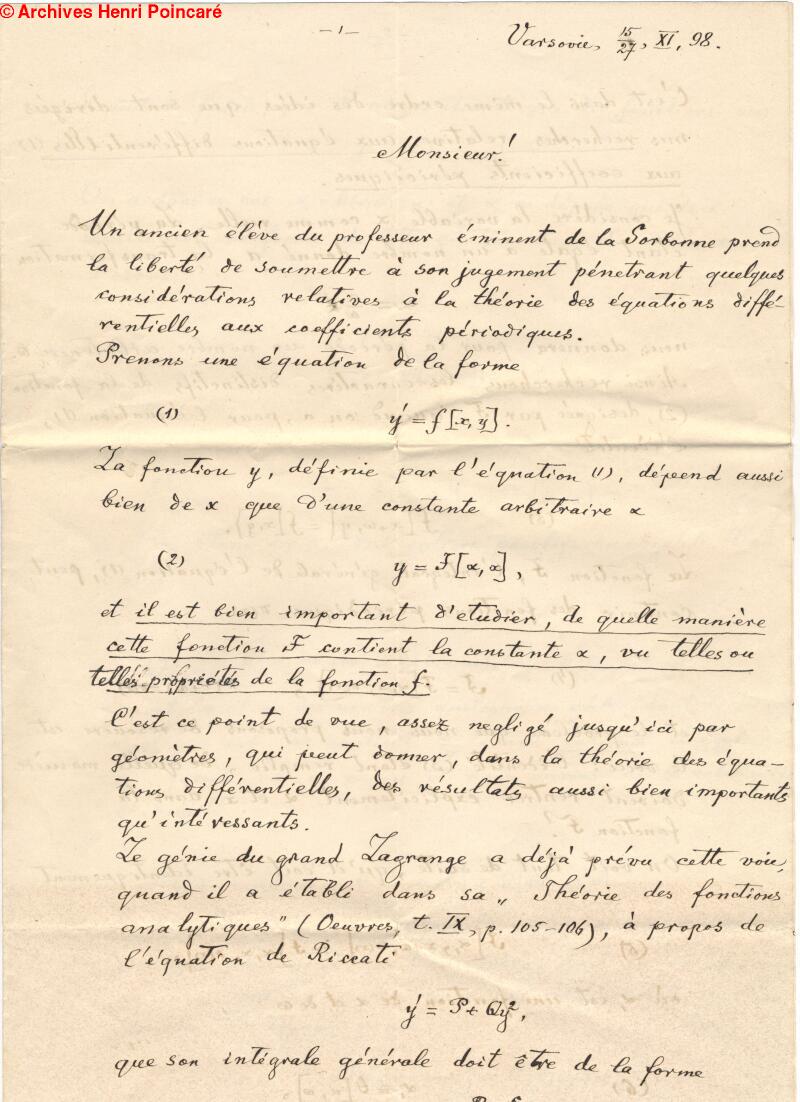 © Archives Henri Poincaré
—1—
Varsovie, 15/27, XI, 98.
Monsieur!
Un ancien élève du professeur éminent de la Sorbonne prend
la liberté de soumettre à son jugement pénetrant quelques
considérations relatives à la théorie des équations diffé-
rentielles aux coefficients périodiques.
Prenons une équation de la forme
(1) y' = f[x, y].
La fonction y, définie par l'équation (1), dépend aussi
bien de x que d'une constante arbitraire α
(2) y = F[x, α],
et il est bien important d'etudier, de quelle manière
cette fonction F contient la constante α, vu telles ou
telles propriétés de la fonction f.
C'est ce point de vue, assez negligé jusqu'ici par
géomètres, qui peut donner, dans la théorie des équa-
tions différentielles, des résultats aussi bien importants
qu'intéressants.
Le génie du grand Lagrange a déjà prévu cette voie,
quand il a établi dans sa „ Théorie des fonctions
analytiques" (Oeuvres, t. IX, p. 105-106), à propos de
l'équation de Riccati
y' = P + Qy²,
que son intégrale générale doit être de la forme